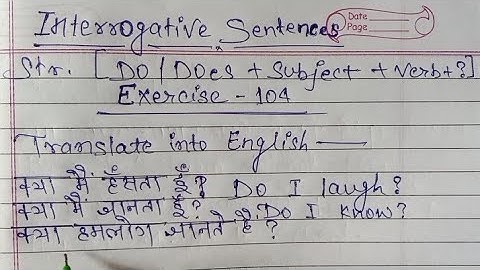 Interrogative Sentences
Date
Page
Str. [Do/Does + Subject + Verb + ?]
Exercise - 104
Translate into English —
क्या मैं हँसता हूँ? Do I laugh?
क्या मैं जानता हूँ? Do I know?
क्या हमलोग जानते हैं ?